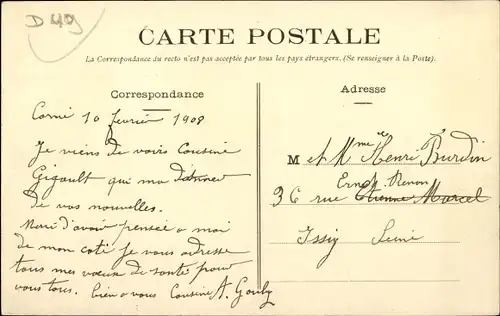 D 49
CARTE POSTALE
La Correspondance du recto n'est pas acceptée par tous les pays étrangers. (Se renseigner à la Poste).
Correspondance
Adresse
10 février 1908
Je viens de voire Cousine
Gigault qui ma
de vos nouvelles.
Merci d'avoir pensée a moi
de mon coté je vous adresse
tous mes vœux de santé pour
vous tous. bien a vous Cousine A.
M et Mme Henri Burdin
Ernest Renan
36 rue Etienne Marcel
Issy Seine